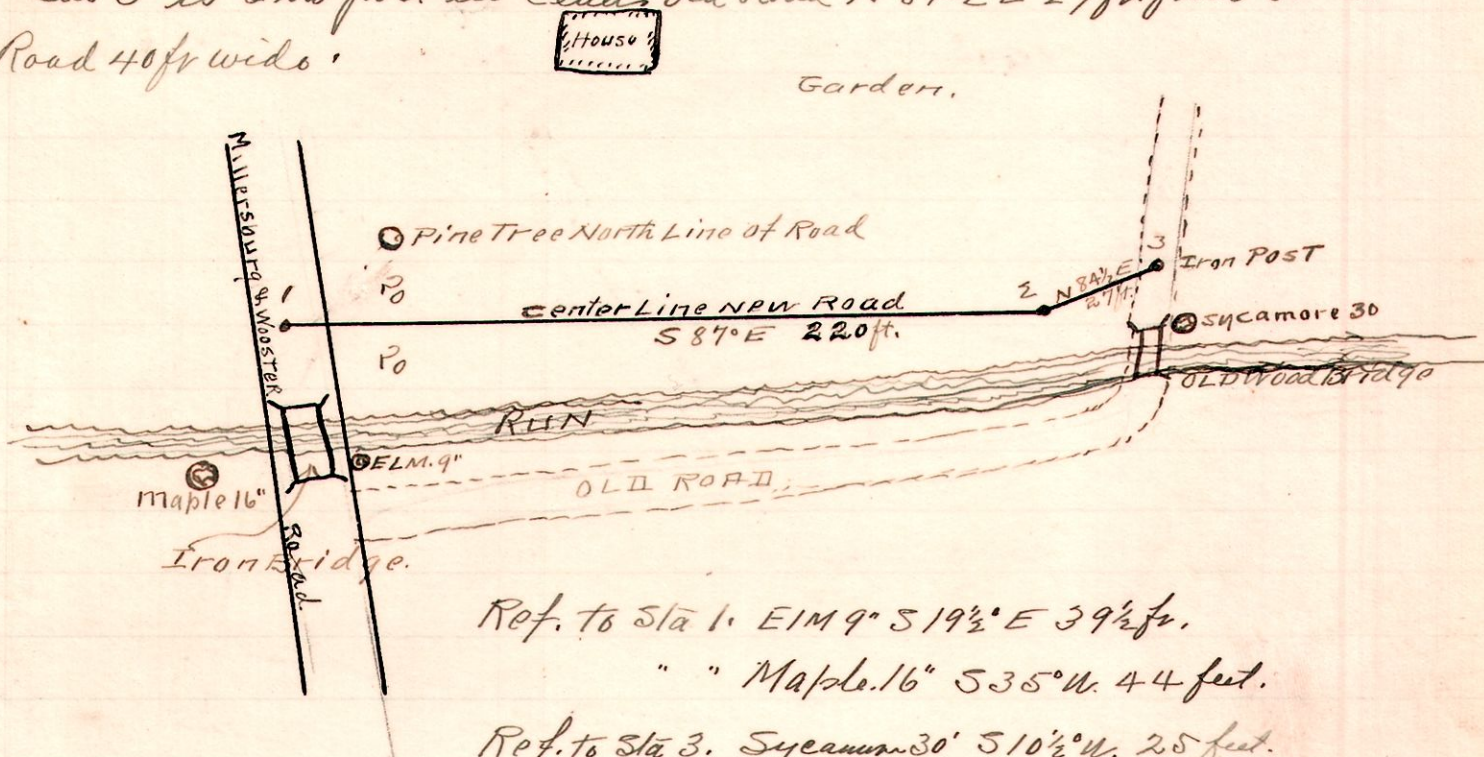 Road 40 ft wide.
House
Garden.
Millersburg & Wooster
Road
Pine Tree North Line of Road
3
Iron Post
1
2
N 84½ E
27 ft.
Center Line New Road
S 87° E 220 ft.
Sycamore 30
Old Wood Bridge
RUN
ELM. 9"
Maple 16"
OLD ROAD
Iron Bridge.
Ref. to Sta 1. Elm 9" S 19½° E 39½ ft.
" " Maple. 16" S 35° W. 44 feet.
Ref. to Sta 3. Sycamore 30' S 10½° W. 25 feet.